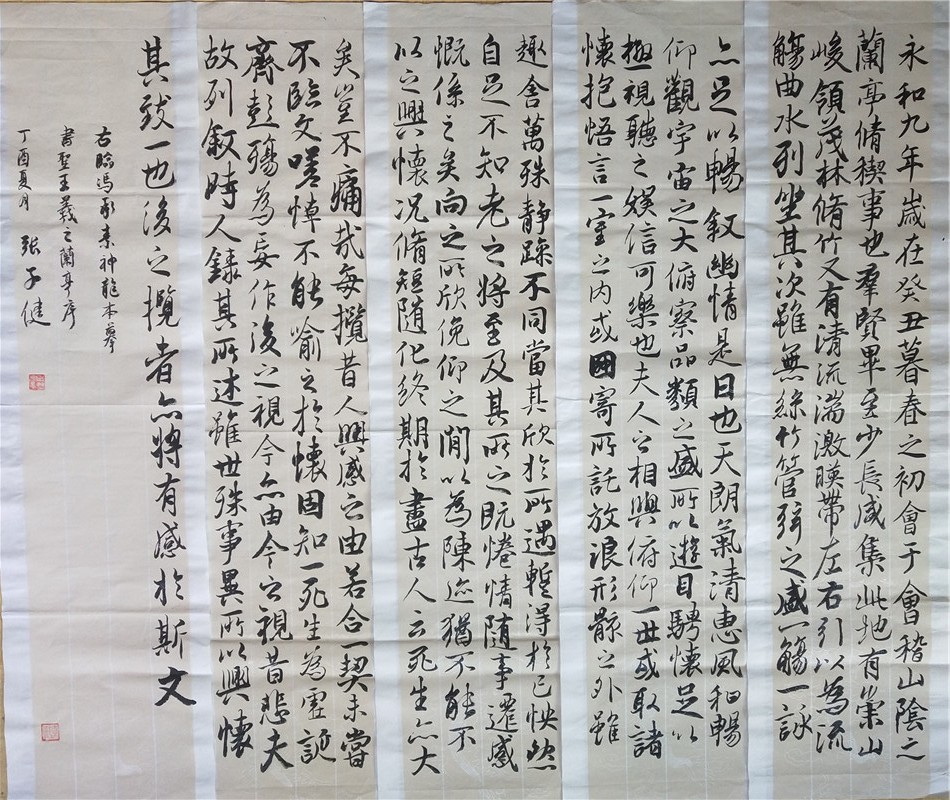 永和九年歲在癸丑暮春之初會于會稽山陰之
蘭亭脩稧事也羣賢畢至少長咸集此地有崇山
峻領茂林脩竹又有清流湍激暎帶左右引以為流
觴曲水列坐其次雖無絲竹管弦之盛一觴一詠
亦足以暢叙幽情是日也天朗氣清惠風和暢
仰觀宇宙之大俯察品類之盛所以遊目騁懷足以
極視聽之娛信可樂也夫人之相與俯仰一世或取諸
懷抱悟言一室之内或因寄所託放浪形骸之外雖
趣舍萬殊静躁不同當其欣於所遇蹔得於己怏然
自足不知老之將至及其所之既惓情随事遷感
慨係之矣向之所欣俛仰之閒以為陳迹猶不能不
以之興懷況脩短随化終期於盡古人云死生亦大
矣豈不痛哉每攬昔人興感之由若合一契未嘗
不臨文嗟悼不能喻之於懷固知一死生為虛誕
齊彭殤為妄作後之視今亦由今之視昔悲夫
故列叙時人錄其所述雖世殊事異所以興懷
其致一也後之攬者亦將有感於斯文
右臨馮承素神龍本摹
書聖王羲之蘭亭序
丁酉夏月 張子健